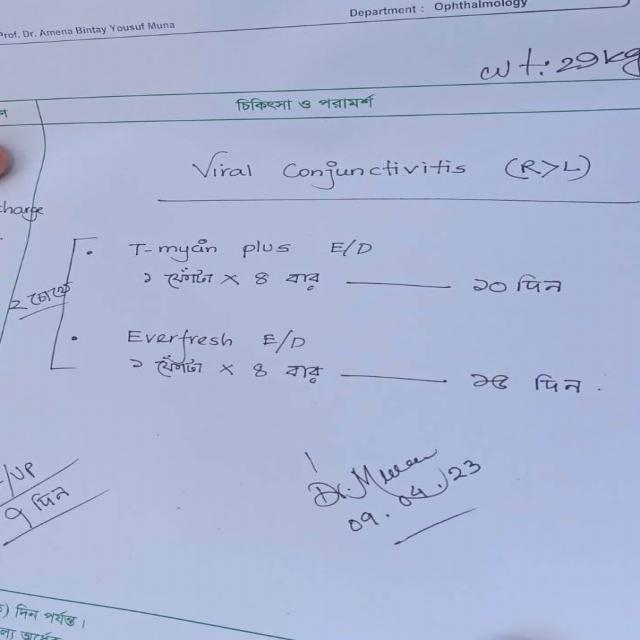 Prof. Dr. Amena Bintay Yousuf Muna
Department : Ophthalmology
wt: 29kg
চিকিৎসা ও পরামর্শ
Viral Conjunctivitis (R>L)
charge
T-mycin plus E/D
১ ফোঁটা × ৪ বার —— ১০ দিন
২ চোখে
Everfresh E/D
১ ফোঁটা × ৪ বার —— ১৫ দিন .
/UP
৭ দিন
Dr. Muna
09.04.23
) দিন পর্যন্ত।